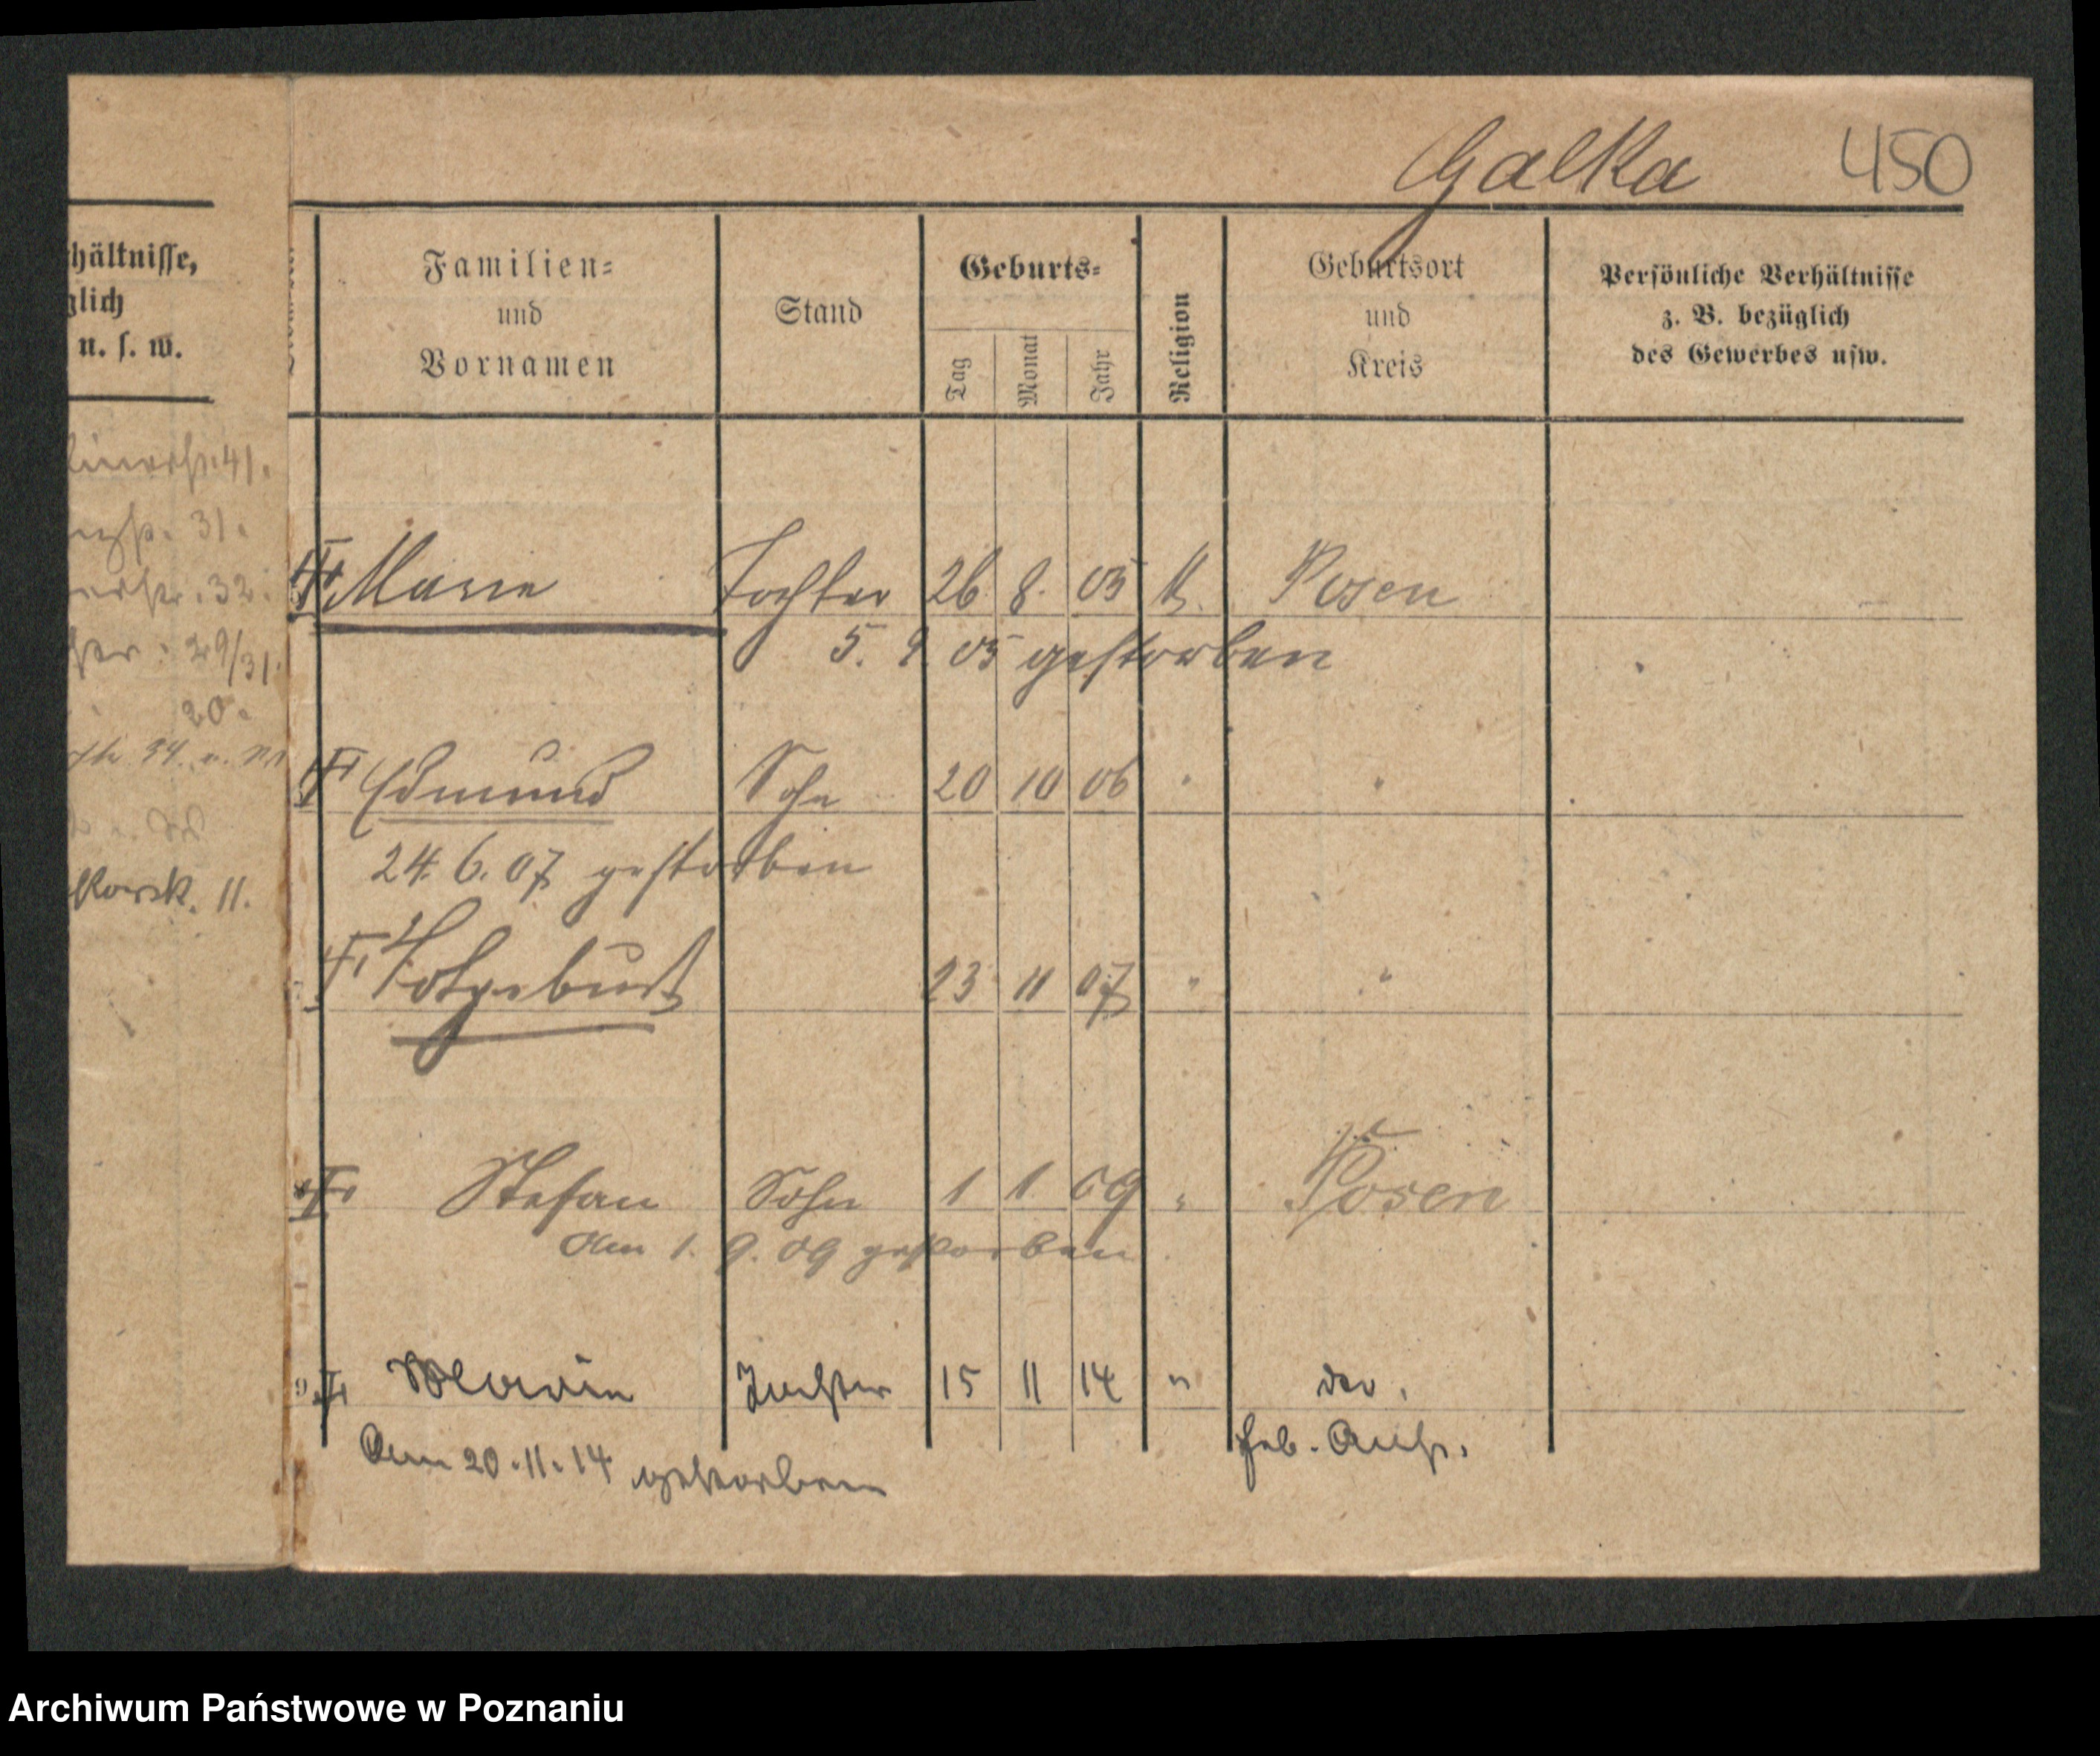 Galka 450
hältnisse,
glich
u. s. w.
Familien=
und
Vornamen
Stand
Geburts=
Tag
Monat
Jahr
Religion
Geburtsort
und
Kreis
Persönliche Verhältnisse
z. B. bezüglich
des Gewerbes usw.
41.
31.
32.
29/31.
20.
34. u.
11.
Marie Tochter 26. 8. 05 K. Posen
5. 9. 05 gestorben
Edmund Sohn 20 10 06 " "
24. 6. 07 gestorben
Totgeburt 23 11 07 " "
Stefan Sohn 1 1. 09 " Posen
Am 1. 9. 09 gestorben
Tochter 15 11 14 "
Am 20.11.14 gestorben
Geb. Anst.
Archiwum Państwowe w Poznaniu